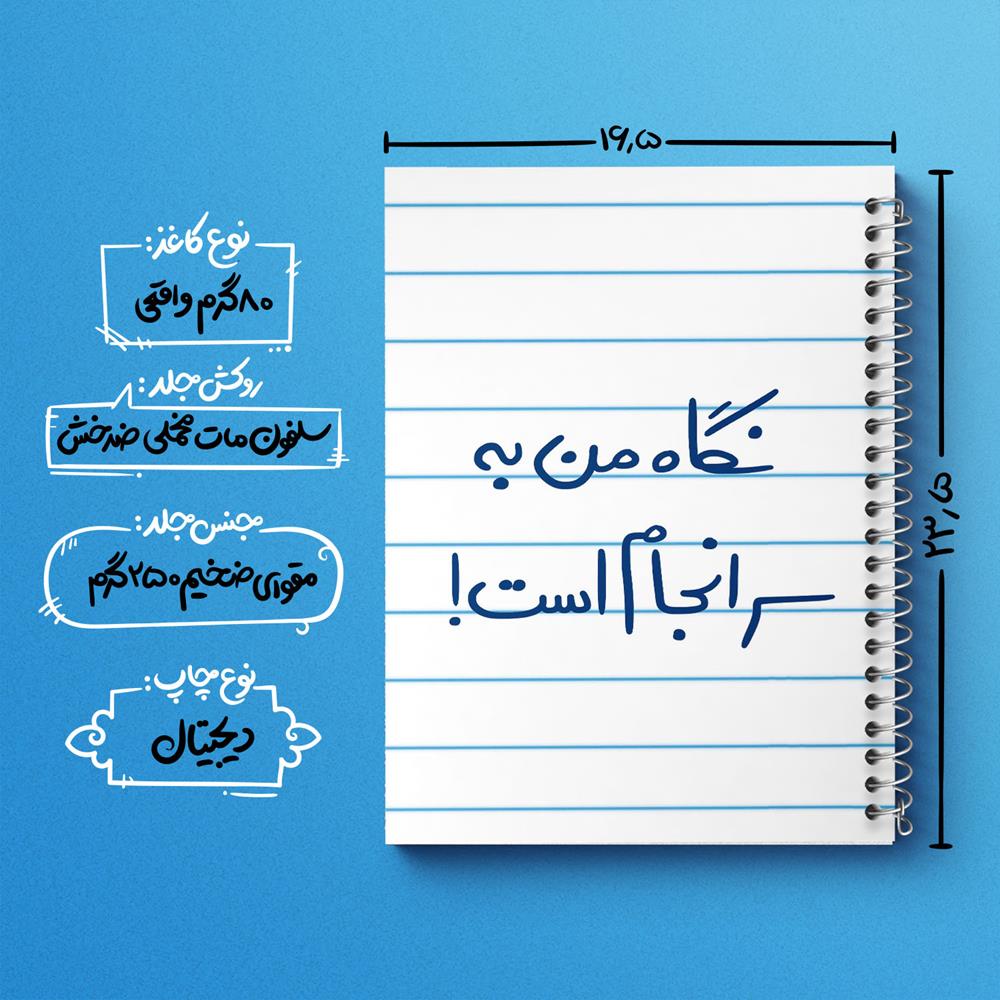 ۱۶,۵
۲۳,۵
نوع کاغذ:
۸۰ گرم واقعی
روکش جلد:
سلفون مات مخملی ضدخش
جنس جلد:
مقوای ضخیم ۲۵۰ گرم
نوع چاپ:
دیجیتال
نگاه من به
سرانجام است!